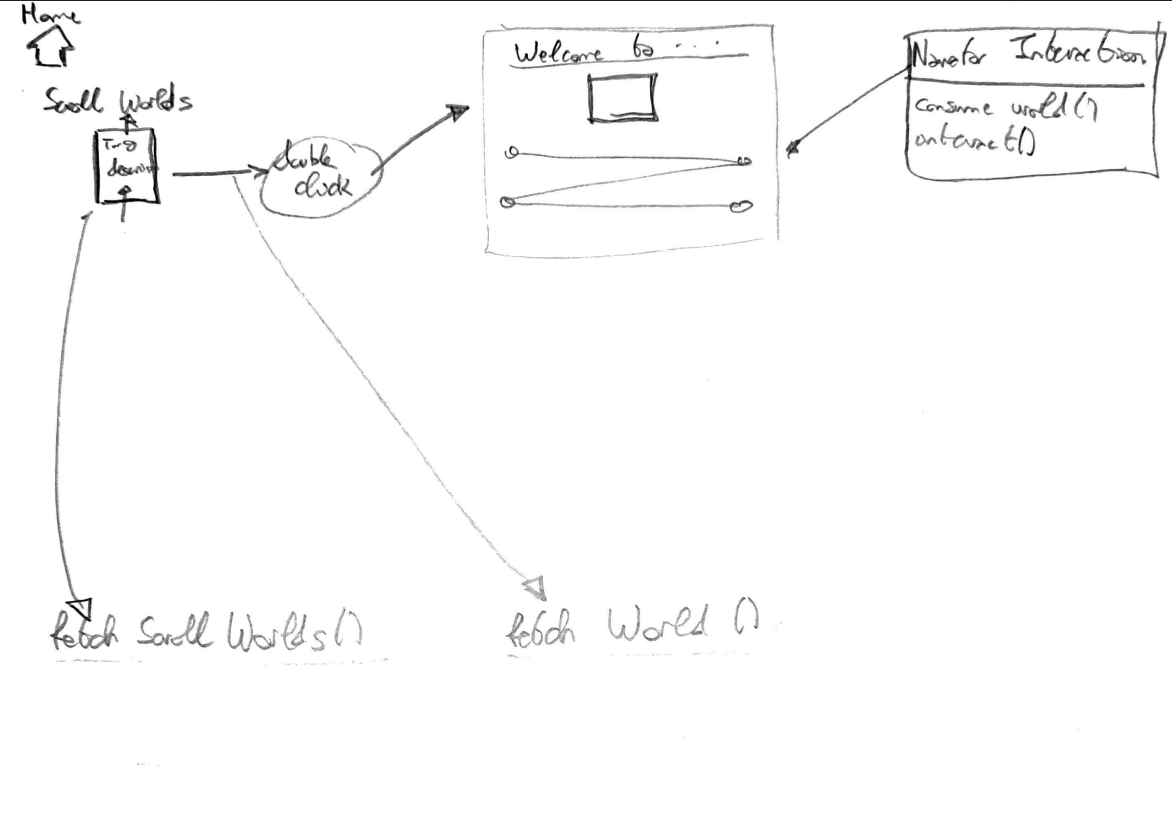 Home
Scroll Worlds
Img
double
click
Welcome to ....
Narrator Interaction
consume world()
interact()
fetch Scroll Worlds()
fetch World ()